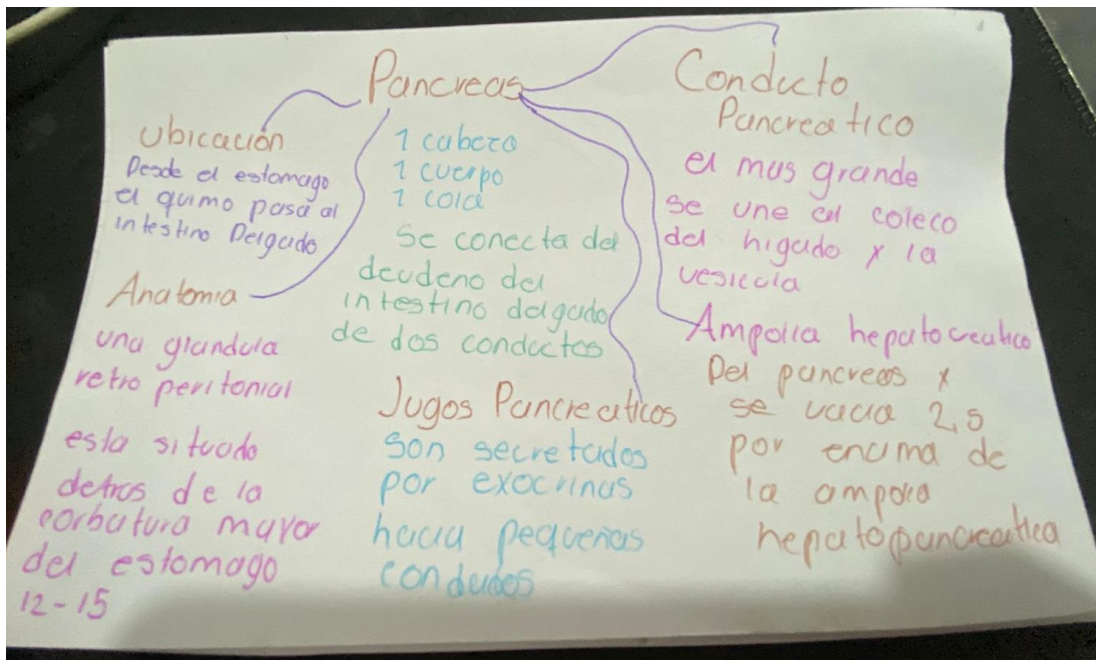 Pancreas
Ubicación
Desde el estomago
el quimo pasa al
intestino Delgado
Anatomia
una glandula
retro peritonial
esta situado
detras de la
corbatura mayor
del estomago
12-15
1 cabeza
1 cuerpo
1 cola
Se conecta del
deudeno del
intestino delgado
de dos conductos
Jugos Pancreaticos
son secretados
por exocrinas
hacia pequeñas
conductos
Conducto
Pancreatico
el mas grande
se une al coleco
del higado y la
vesicula
Ampolla hepatocreatico
Del pancreas y
se vacia 2,5
por encima de
la ampolla
hepatopancreatica